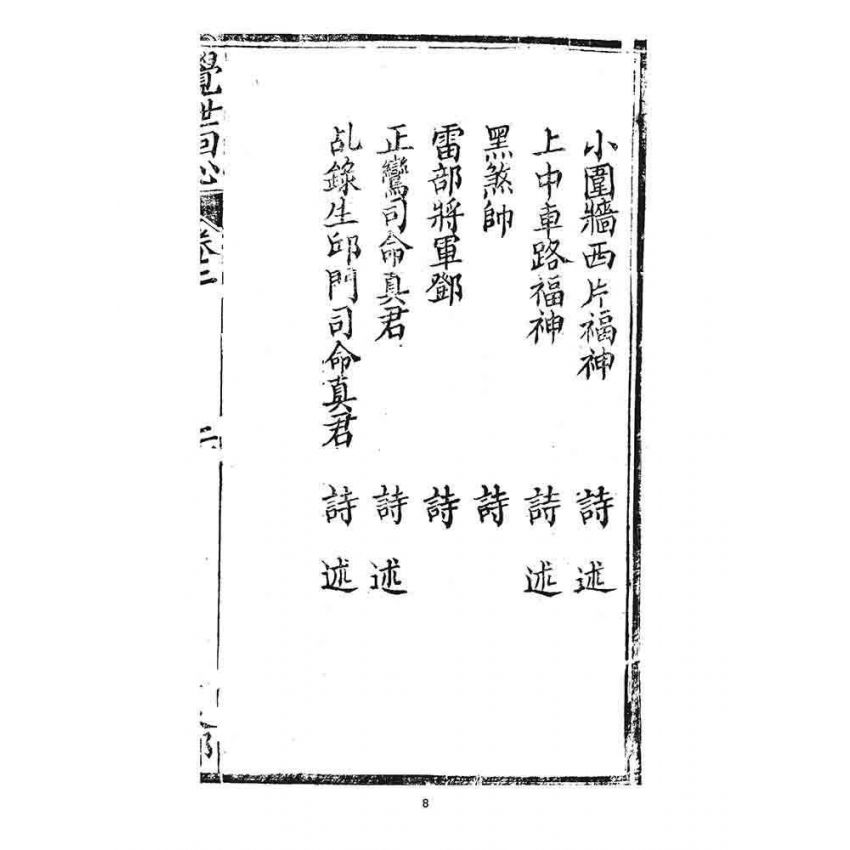 小圍牆西片福神 詩 述
上中車路福神 詩 述
黑煞帥 詩
雷部將軍鄧 詩
正鸞司命真君 詩 述
乩錄生邱門司命真君 詩 述
覺世回心 卷二 二
8